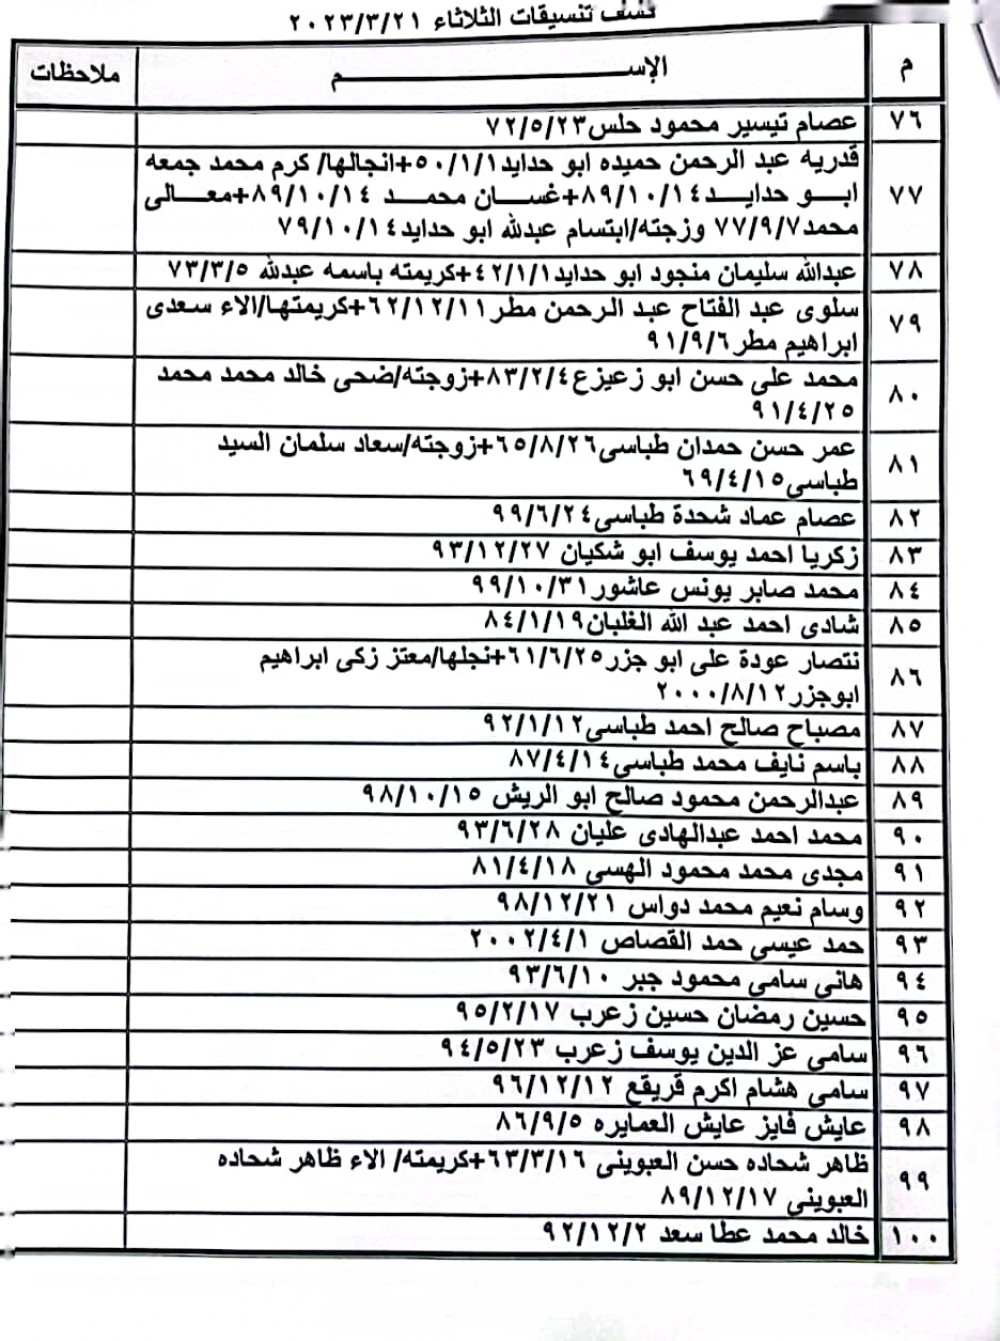 كشف تنسيقات الثلاثاء ٢٠٢٣/٣/٢١
م الإســـــــــــــم ملاحظات
٧٦ عصام تيسير محمود حلس٧٢/٥/٢٣
قدريه عبد الرحمن حميده ابو حدايد٥٠/١/١+انجالها/ كرم محمد جمعه
٧٧ ابـــو حدايـــد٨٩/١٠/١٤+غســـان محمـــد ٨٩/١٠/١٤+معـــالى
محمد٧٧/٩/٧ وزجته/ابتسام عبدالله ابو حدايد٧٩/١٠/١٤
٧٨ عبدالله سليمان منجود ابو حدايد٤٢/١/١+كريمته باسمه عبدلله ٧٣/٣/٥
٧٩ سلوى عبد الفتاح عبد الرحمن مطر٦٢/١٢/١١+كريمتها/الاء سعدى
ابراهيم مطر٩١/٩/٦
٨٠ محمد على حسن ابو زعيزع٨٣/٢/٤+زوجته/ضحى خالد محمد محمد
٩١/٤/٢٥
٨١ عمر حسن حمدان طباسى٦٥/٨/٢٦+زوجته/سعاد سلمان السيد
طباسى٦٩/٤/١٥
٨٢ عصام عماد شحدة طباسى٩٩/٦/٢٤
٨٣ زكريا احمد يوسف ابو شكيان ٩٣/١٢/٢٧
٨٤ محمد صابر يونس عاشور٩٩/١٠/٣١
٨٥ شادى احمد عبد الله الغلبان٨٤/١/١٩
٨٦ نتصار عودة على ابو جزر٦١/٦/٢٥+نجلها/معتز زكى ابراهيم
ابوجزر٢٠٠٠/٨/١٢
٨٧ مصباح صالح احمد طباسى٩٢/١/١٢
٨٨ باسم نايف محمد طباسى٨٧/٤/١٤
٨٩ عبدالرحمن محمود صالح ابو الريش ٩٨/١٠/١٥
٩٠ محمد احمد عبدالهادى عليان ٩٣/٦/٢٨
٩١ مجدى محمد محمود الهسى ٨١/٤/١٨
٩٢ وسام نعيم محمد دواس ٩٨/١٢/٢١
٩٣ حمد عيسى حمد القصاص ٢٠٠٢/٤/١
٩٤ هانى سامى محمود جبر ٩٣/٦/١٠
٩٥ حسين رمضان حسين زعرب ٩٥/٢/١٧
٩٦ سامى عز الدين يوسف زعرب ٩٤/٥/٢٣
٩٧ سامى هشام اكرم قريقع ٩٦/١٢/١٢
٩٨ عايش فايز عايش العمايره ٨٦/٩/٥
٩٩ ظاهر شحاده حسن العبوينى ٦٣/٣/١٦+كريمته/ الاء ظاهر شحاده
العبوينى ٨٩/١٢/١٧
١٠٠ خالد محمد عطا سعد ٩٢/١٢/٢